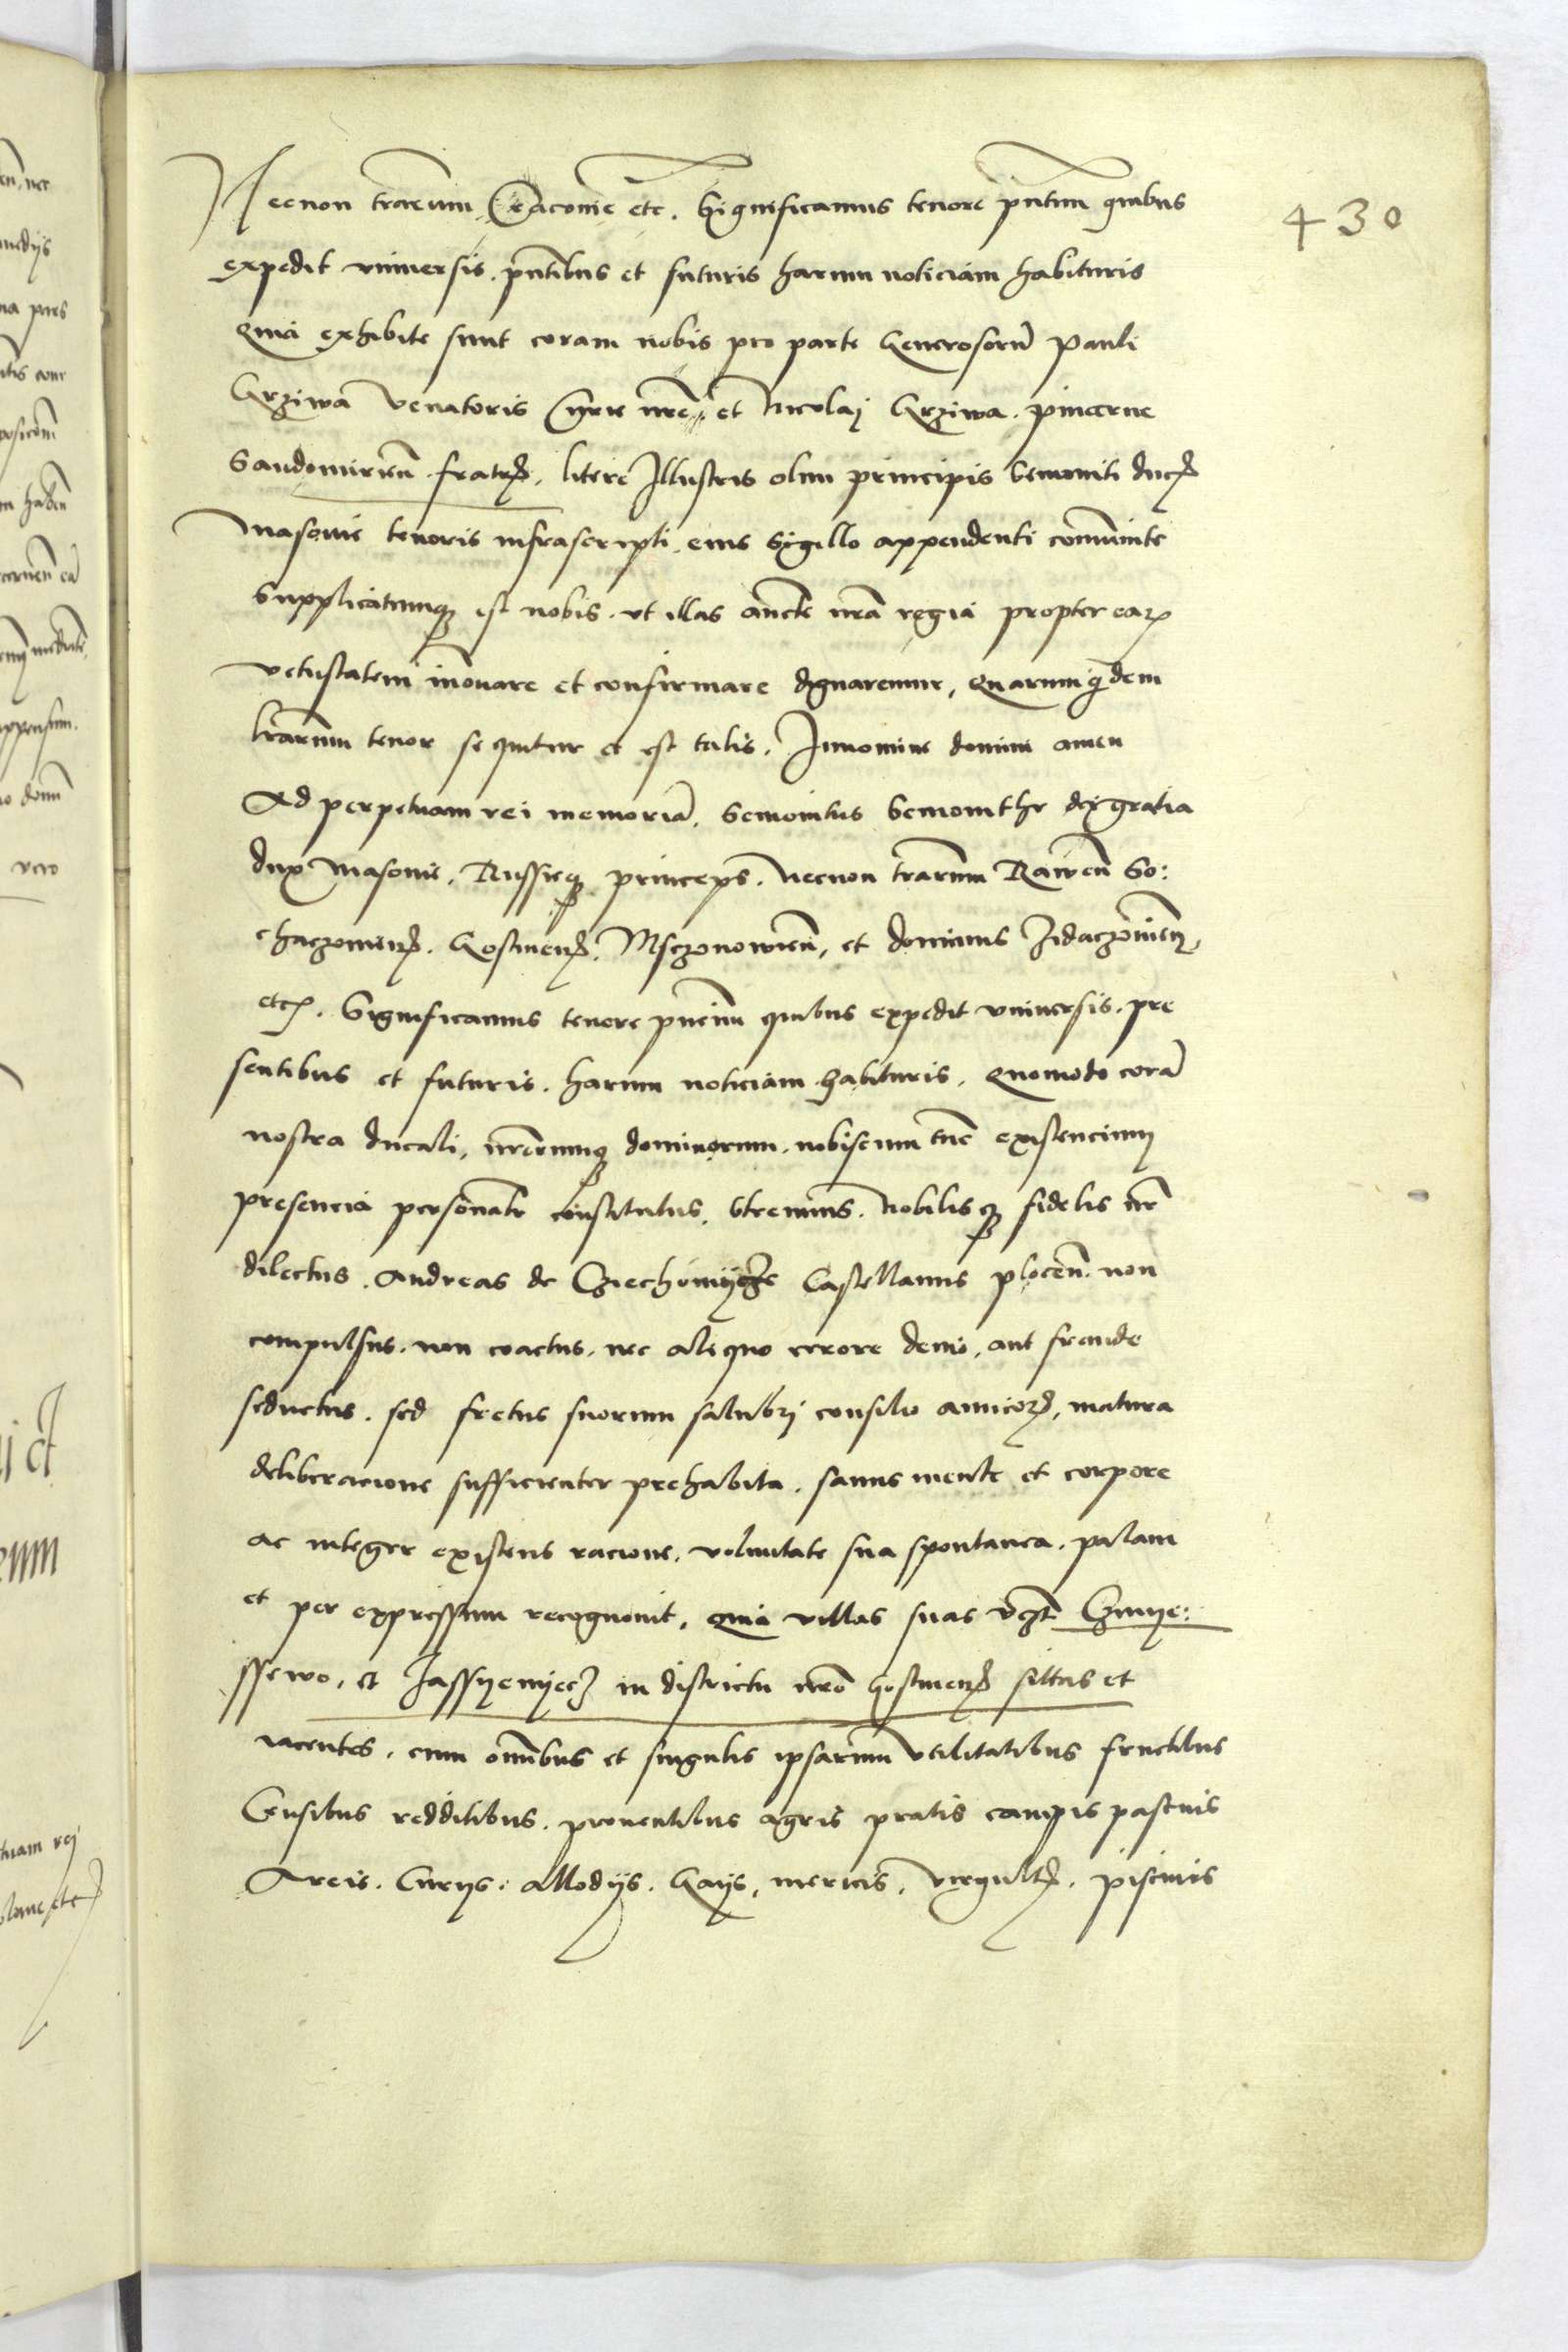 430
Necnon trarum Cracovie etc. Significamus tenore pntium quibus
expedit vniuersis. pntibus et futuris harum noticiam habituris
Quia exhibite sunt coram nobis pro parte Generosorũ Pauli
Grziwa venatoris Curie nre, et Nicolaj Grziwa. pincerne
Sandomirien. fratrũ. litere Illustris olim principis Semoviti ducis
Masovie tenoris infrascripti eius Sigillo appendenti comunite
Supplicatumq est nobis. vt illas aucte nrã regia propter earũ
vetustatem innouare et confirmare dignaremur, Quarum qdem
lrarum tenor sequitur et est talis. Innomine domini amen
Ad perpetuam rei memoriã. Semovitus Semovithi deigratia
dux Masovie. Russieq princeps. necnon trarum Raven So:
chaczovien. Gostinen. Msczonovien, et dominus Zidaczovien,
etc. Significamus tenore pncium quibus expedit vniuersis. pre
sentibus et futuris. harum noticiam habituris. Quomodo corã
nostra ducali, nrorumq dominorum. nobiscum tnc existencium
presencia personalr constitutus. Strenuus. Nobilisq fidelis nr
dilectus. Andreas de Czechomycze Castellanus plocen. non
compulsus. non coactus. nec aliquo errore devio, aut fraude
seductus. sed fretus suorum salubrj consilio amicorũ, matura
deliberacione sufficienter prehabita. sanus mente et corpore
ac integre existens racione. voluntate sua spontanea. palam
et per expressum recognovit, quia villas suas vczt
ssewo, et Jassyenyecz in districtu nro Gostinen. sittas et
iacentes. cum omnibus et singulis ipsarum vtilitatibus fructibus
Censibus redditibus. proventibus agris pratis campis pascuis
Areis. Curys. allodys. Gays, mericis. virgultis. piscinis